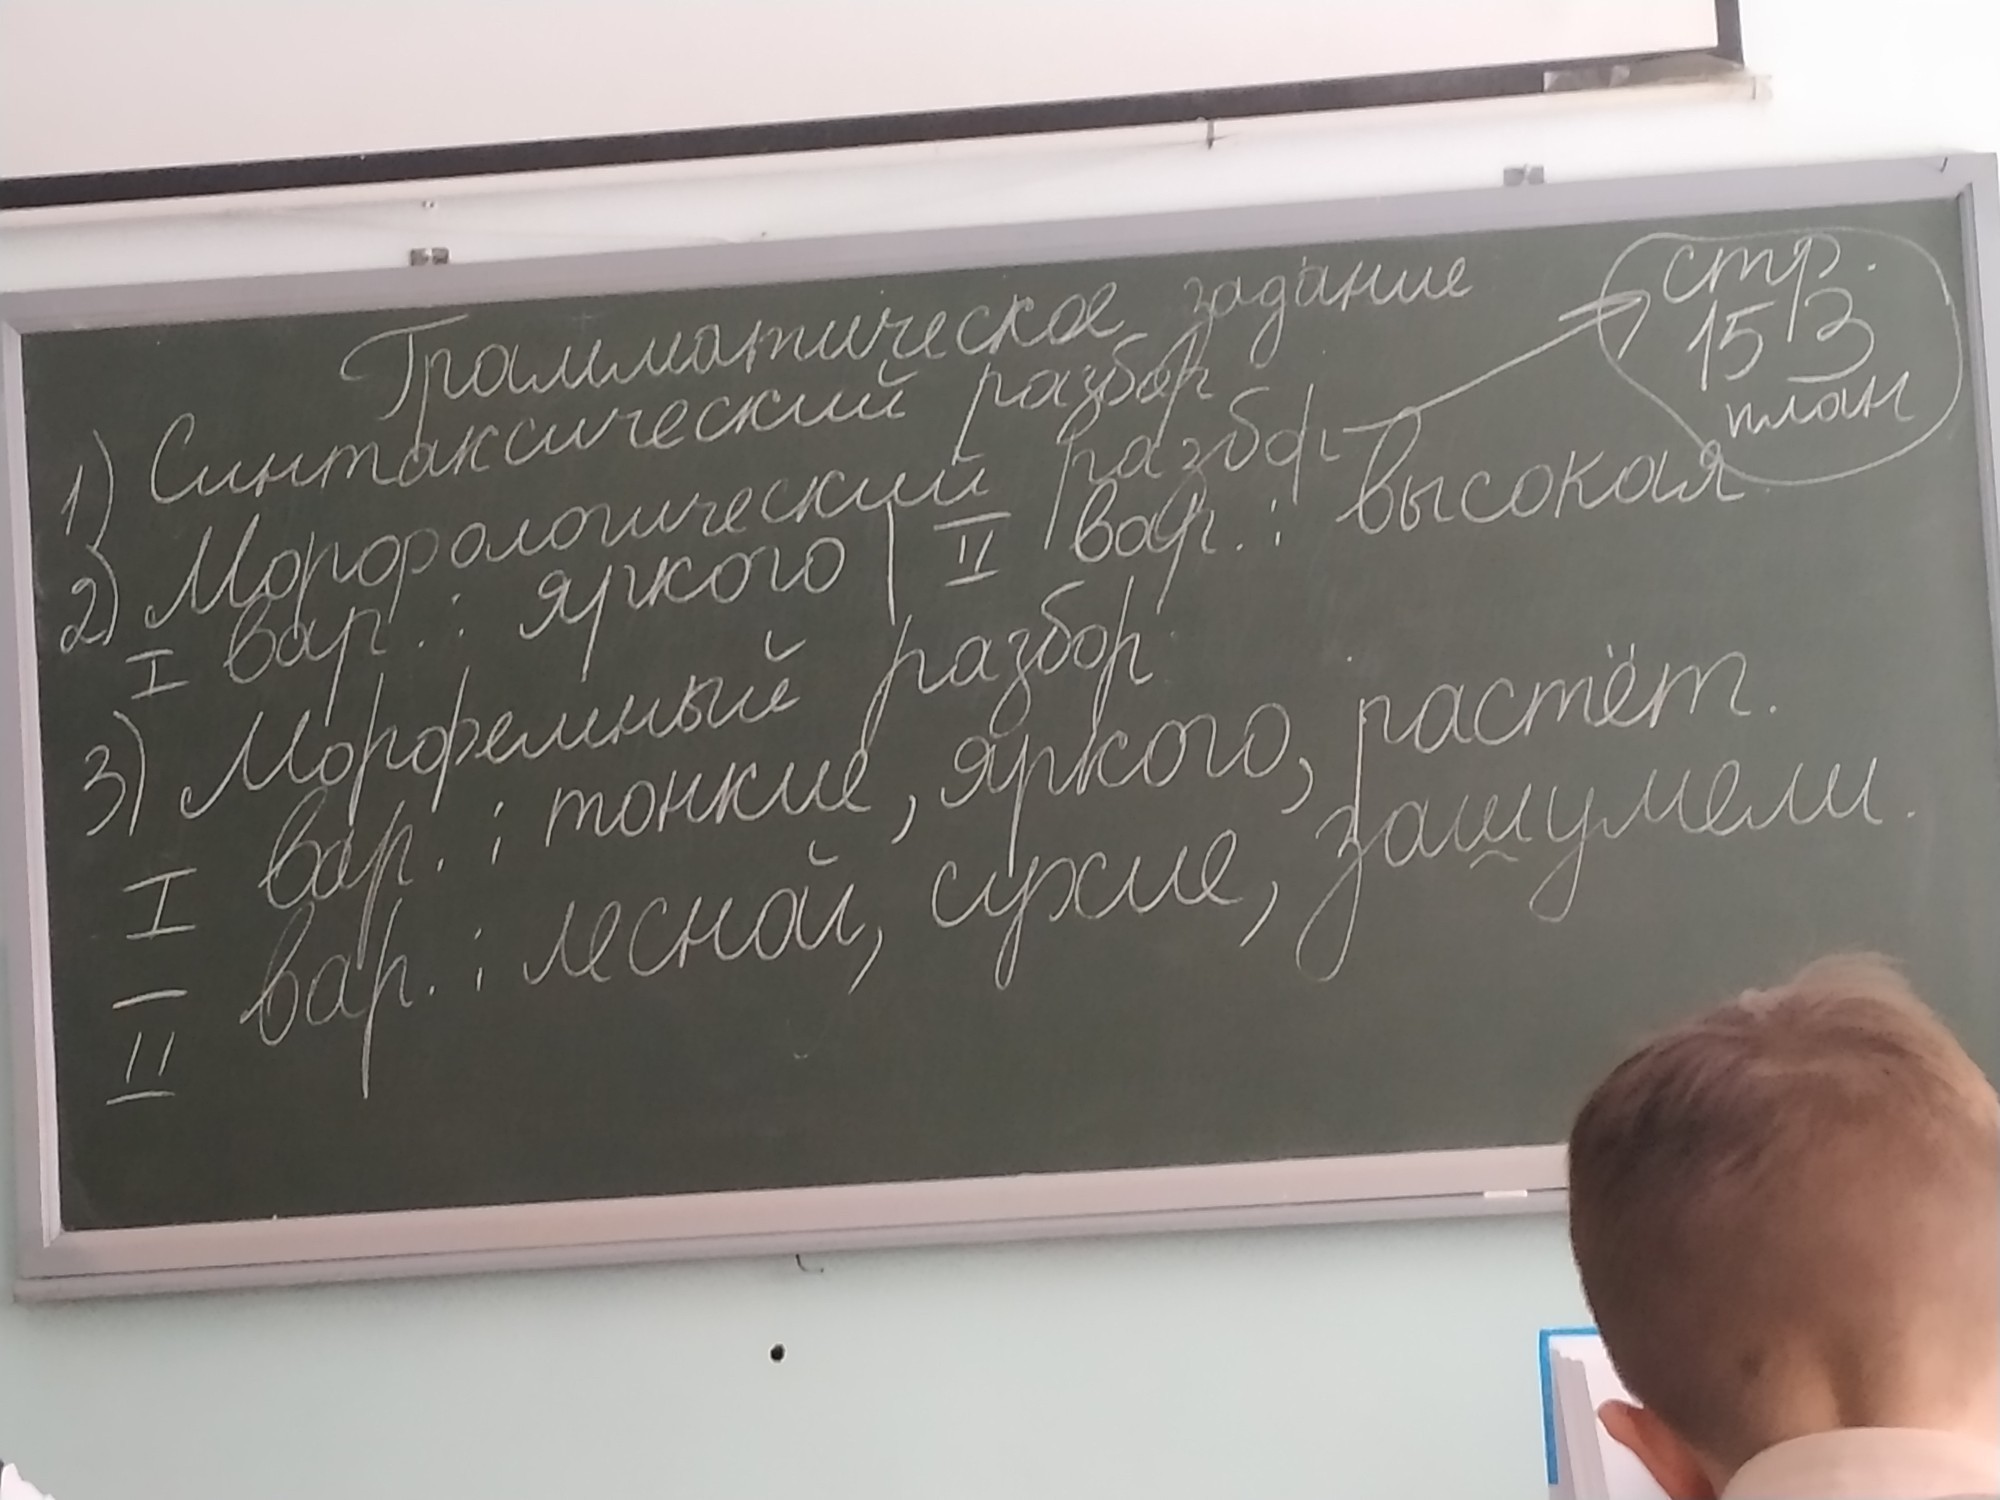 Грамматическое задание
стр.
153
план
1) Синтаксический разбор
2) Морфологический разбор
I вар.: яркого | II вар.: высокая
3) Морфемный разбор
I вар.: тонкие, яркого, растёт.
II вар.: лесной, сухие, зашумели.